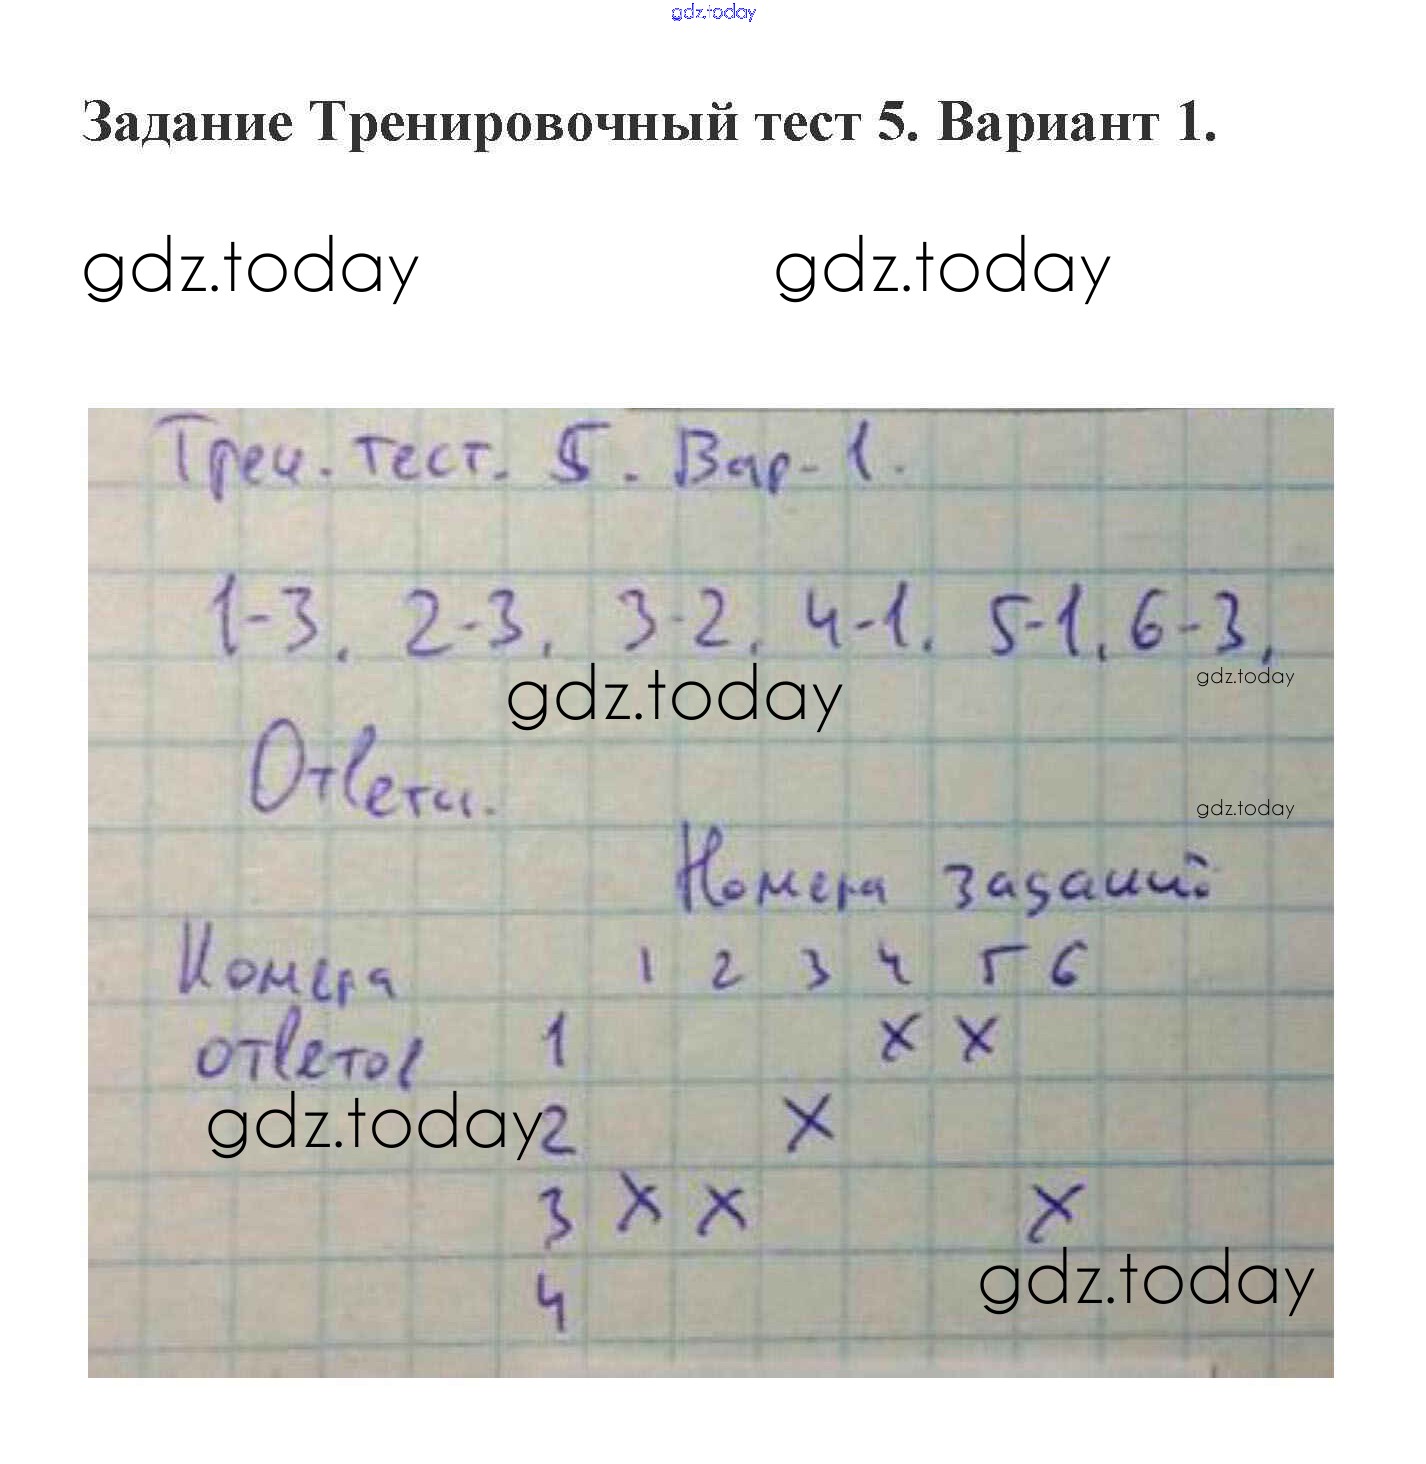 gdz.today
Задание Тренировочный тест 5. Вариант 1.
gdz.today gdz.today
Трен. тест. 5. Вар-1.
1-3. 2-3. 3-2. 4-1. 5-1. 6-3.
gdz.today gdz.today
Ответы.
gdz.today
Номера заданий
Номера 1 2 3 4 5 6
ответов 1 х х
gdz.today 2 х
3 х х х
gdz.today
4